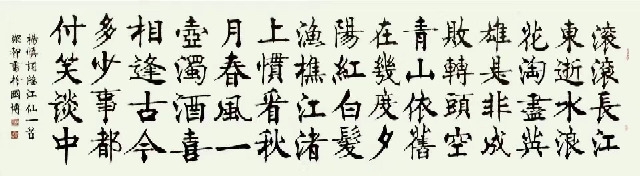 滚滚長江
東逝水浪
花淘盡英
雄是非成
敗轉頭空
青山依舊
在幾度夕
陽紅白髮
漁樵江渚
上慣看秋
月春風一
壺濁酒喜
相逢古今
多少事都
付笑談中
楊慎詞臨江仙一首
書於國博